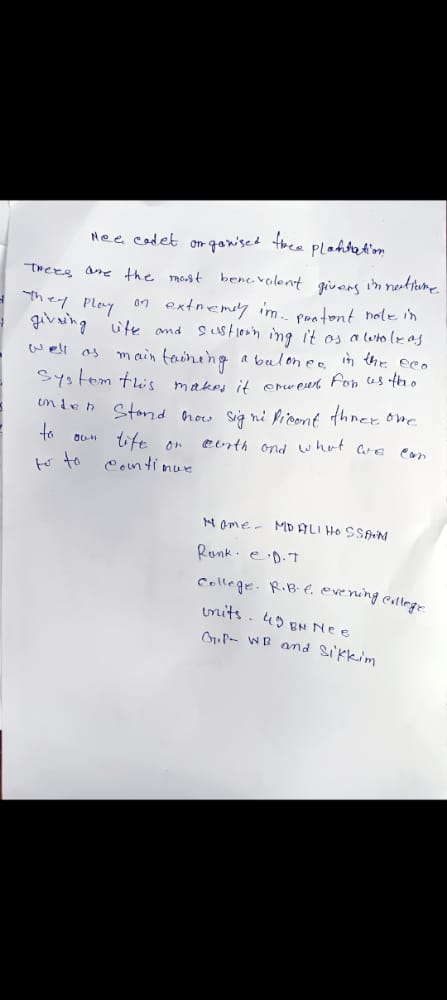 Ncc cadet organised tree plantation
Trees are the most benevalent givers in nature
They play an extremely im- portont role in
giving life and sustion ing it as a whole as
well as maintaining a balance in the eco
system this makes it for us tho
under stand how signi ficont three are
to own life on earth and what are can
to to countinue
Name- MD ALI HOSSAIN
Rank. C.D.T
College. R.B.C. evening college
units - 49 BN Ncc
G.P- WB and Sikkim